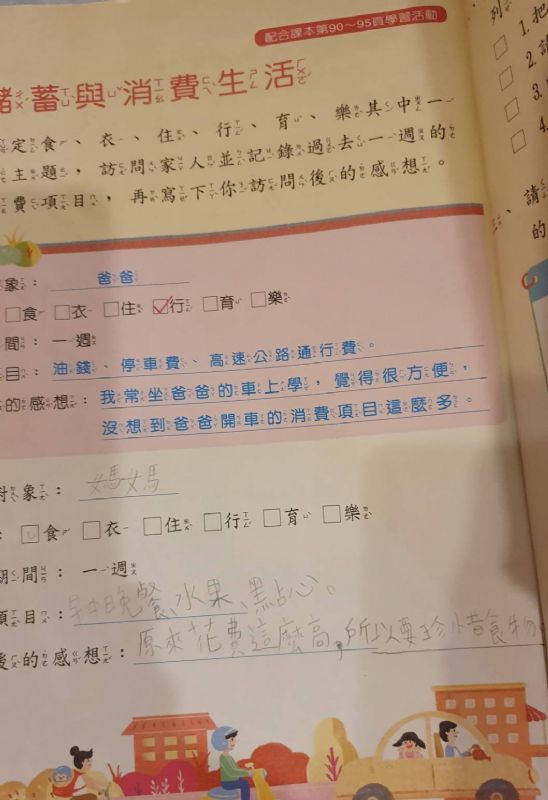 配合課本第90～95頁學習活動
儲蓄與消費生活
定食、衣、住、行、育、樂其中一
主題，訪問家人並記錄過去一週的
費項目，再寫下你訪問後的感想。
象：爸爸
□食 □衣 □住 ☑行 □育 □樂
間：一週
目：油錢、停車費、高速公路通行費。
的感想：我常坐爸爸的車上學，覺得很方便，
沒想到爸爸開車的消費項目這麼多。
對象：媽媽
：□食 □衣 □住 □行 □育 □樂
期間：一週
項目：早中晚餐、水果、點心。
後的感想：原來花費這麼高，所以要珍惜食物。
列
1. 把
2. 請
3.
4.
三、請
的